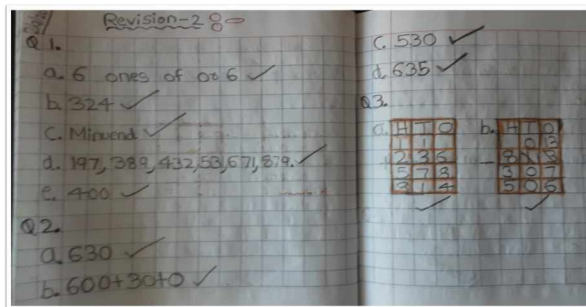 Revision-2 :-
Q1.
a. 6 ones of or 6
b. 324
c. Minuend
d. 197, 389, 432, 53, 671, 879.
e. 400
Q2.
a. 630
b. 600+30+0
c. 530
d. 635
Q3.
a. H T O
1 1
2 3 6
5 7 8
3 1 4
b. H T O
0 13
- 8 1 3
3 0 7
5 0 6